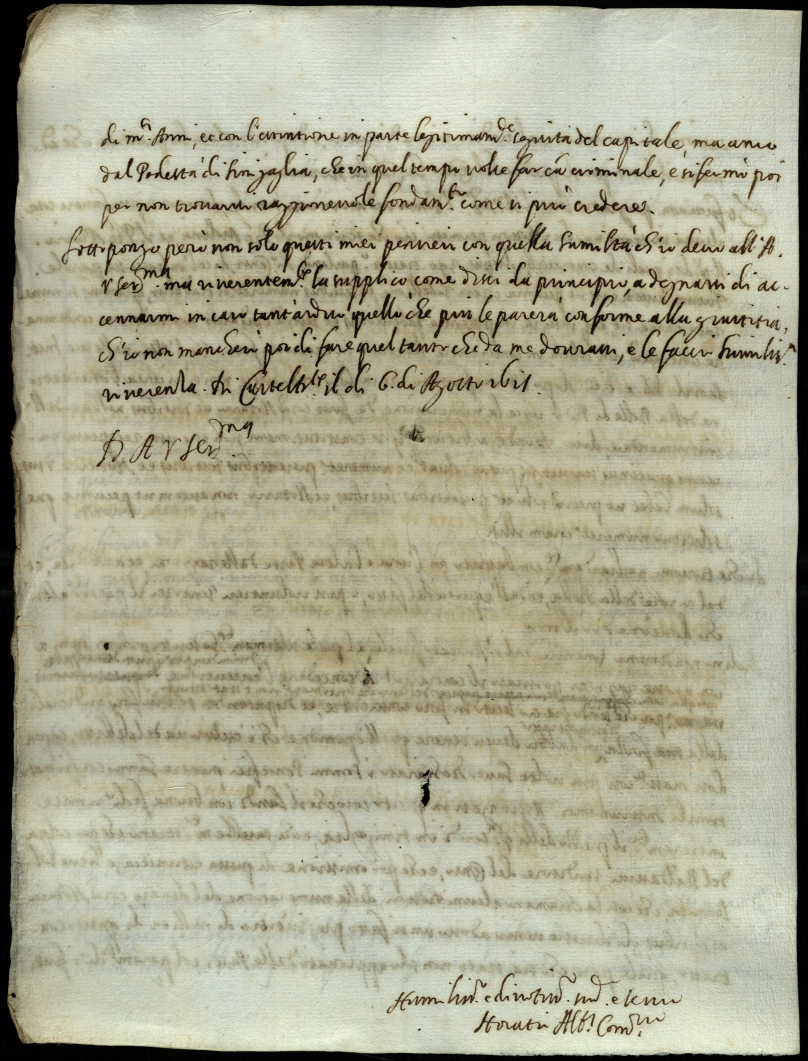 di m.ti Anni, et con l'estintione in parte legitimam.te seguita del capitale, ma anco
dal Podestà di Sinigaglia, che in quel tempo volse far ca criminale, e si fermò poi
per non trovarvi raggionevole fondam.to come si può credere.
Sottopongo però non solo questi miei pensieri con quella humiltà ch'io devo all'A.
V. Ser.ma ma riverentem.te la supplico come dissi da principio, a degnarsi di ac-
cennarmi in caso tant'arduo quello che più le parerà conforme alla giustitia,
ch'io non mancherò poi di fare quel tanto che da me dovrassi, e le faccio humiliss.a
riverenza. Di Casteld.te il di 6. di Agosto 1615.
D A V Ser.ma
Humiliss.o e divotiss.o ser.re
Horatio Alb.i Com.rio